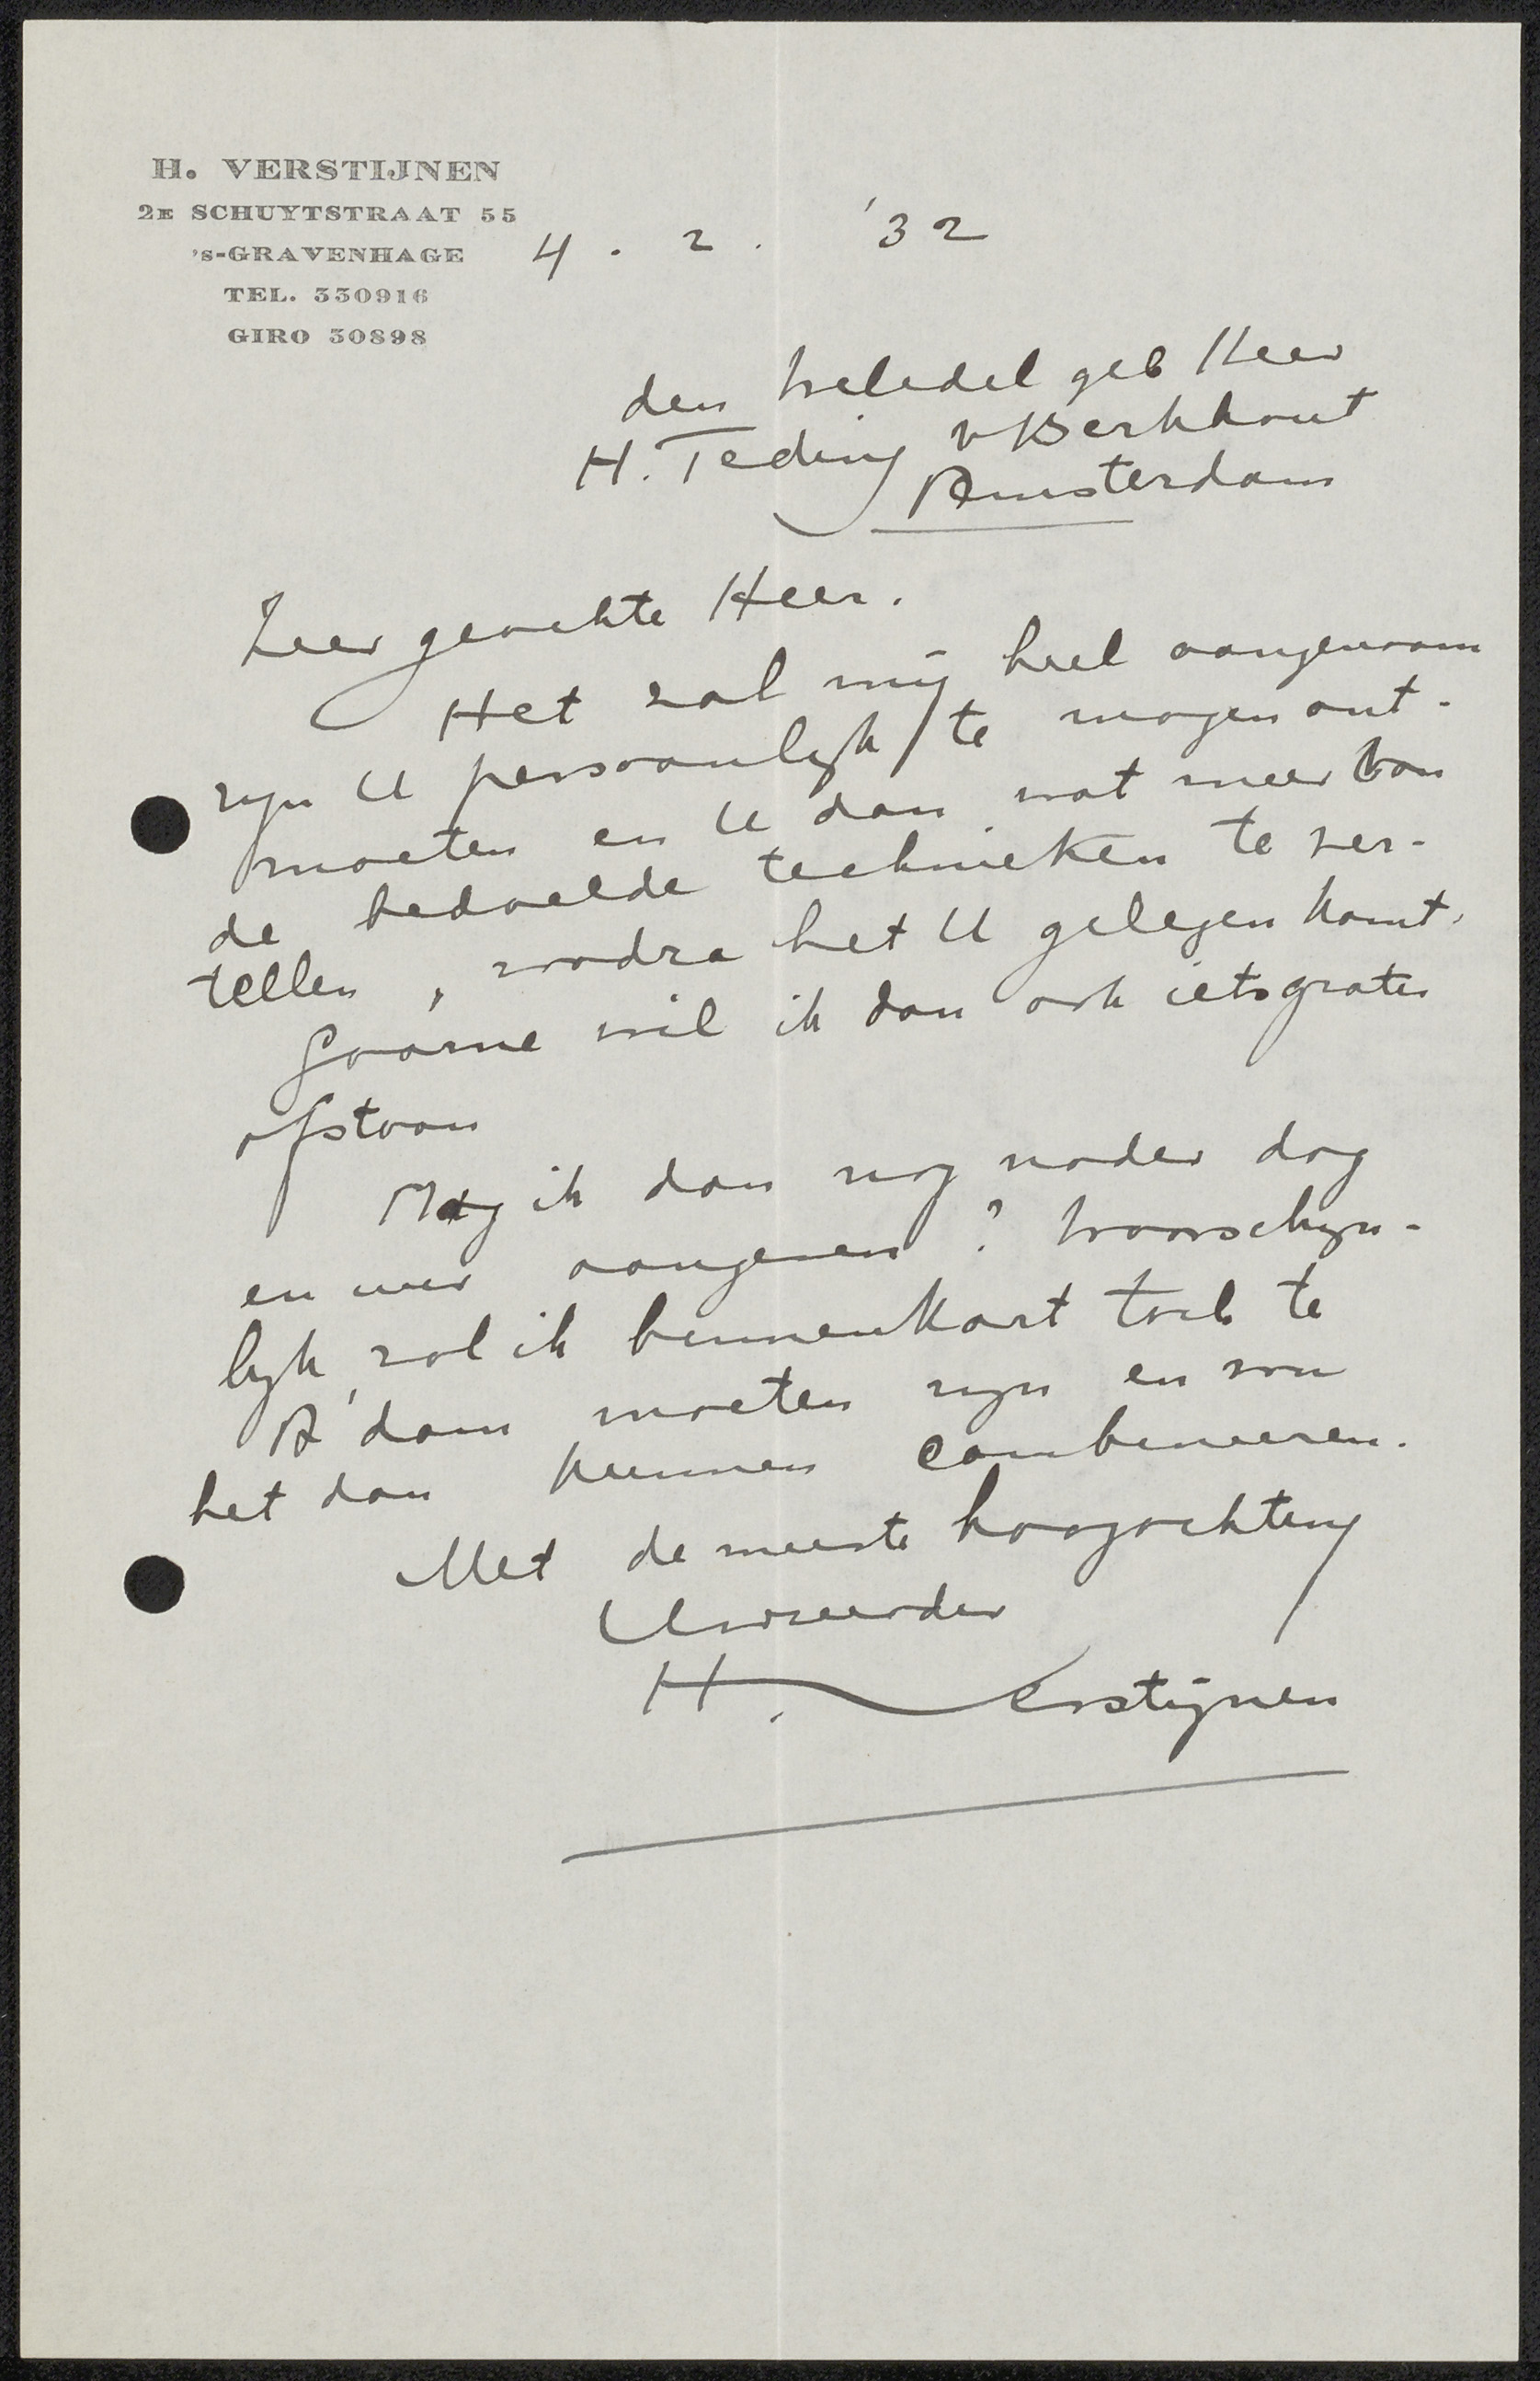 H. VERSTIJNEN
2E SCHUYTSTRAAT 55
's-GRAVENHAGE
TEL. 330916
GIRO 30898
4. 2. '32
den weledel geb Heer
H. Teding v Berkhout
Amsterdam
Zeer geachte Heer.
Het zal mij heel aangenaam
zijn U persoonlijk te mogen ont-
moeten en U dan wat meer van
de bedoelde technieken te ver-
tellen, zoodra het U gelegen komt.
Gaarne wil ik dan ook iets gratis
afstaan
Mag ik dan nog nader dag
en uur aangeven? Waarschijn-
lijk zal ik binnenkort toch te
A'dam moeten zijn en zou
het dan kunnen combineeren.
Met de meeste hoogachting
Uw
H. Verstijnen